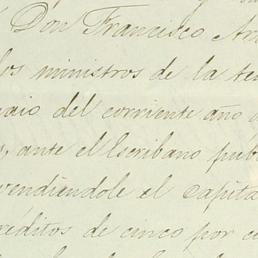 Don Francisco
los ministros de la
del corriente año
, ante el Escribano
vendiendole el
réditos de cinco por